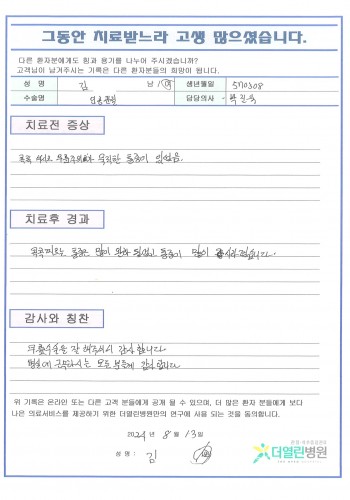 그동안 치료받느라 고생 많으셨습니다.
다른 환자분에게도 힘과 용기를 나누어 주시겠습니까?
고객님이 남겨주시는 기록은 다른 환자분들의 희망이 됩니다.
성 명 김 남/여 생년월일 570308
수술명 담당의사
치료전 증상
통증이 있었음.
치료후 경과
통증은 많이 완화 되었고 통증이 많이 사라졌습니다.
감사와 칭찬
무릎수술을 잘 해주셔서 감사합니다
병원에 근무하시는 모든 분들께 감사합니다
위 기록은 온라인 또는 다른 고객 분들에게 공개 될 수 있으며, 더 많은 환자 분들에게 보다
나은 의료서비스를 제공하기 위한 더열린병원만의 연구에 사용 되는 것을 동의합니다.
2024년 8월 13일
성 명 : 김
더열린병원